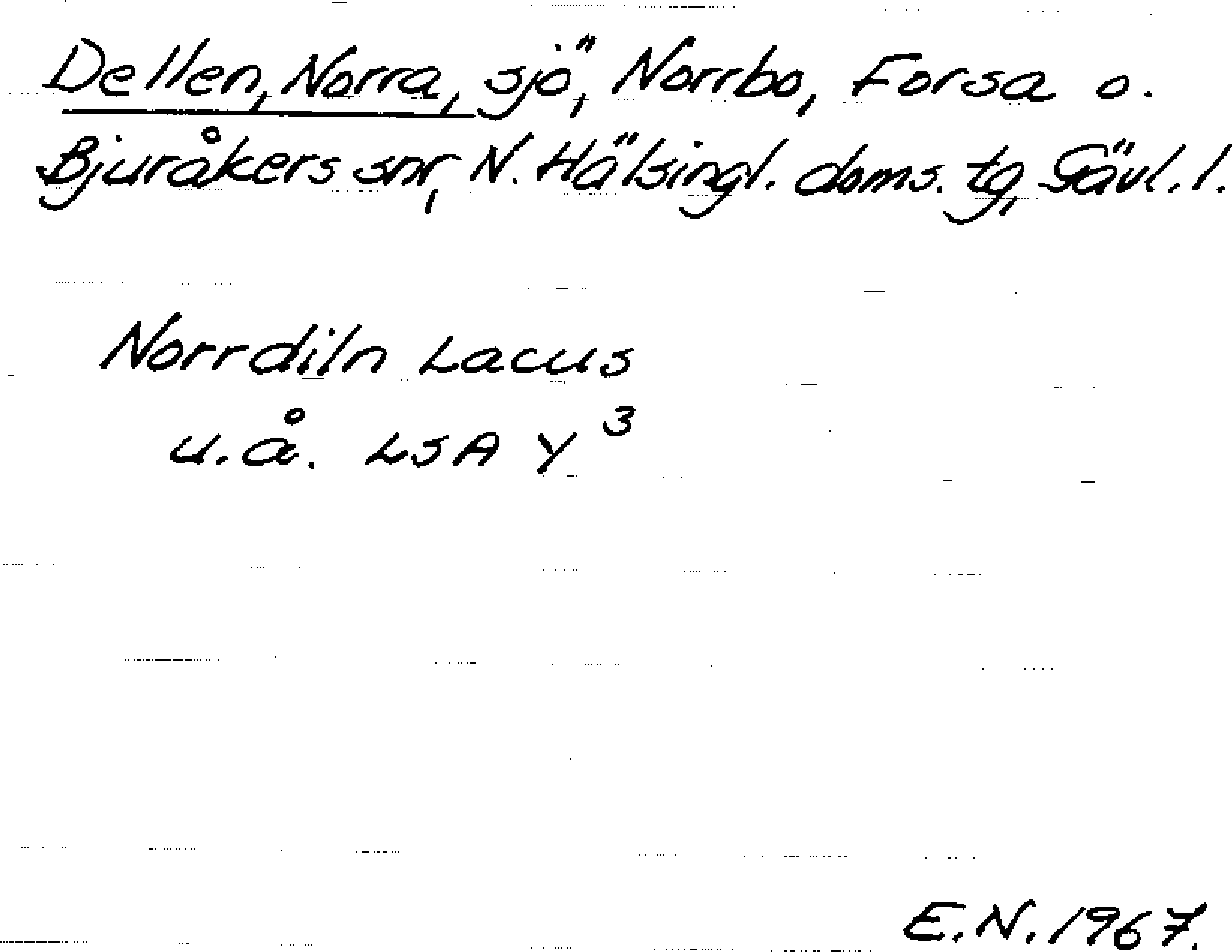 Dellen, Norra, sjö, Norrbo, Forsa o.
Bjuråkers snr, N. Hälsingl. doms. tg, Gävl. l.
Norrdiln Lacus
u.å. LSA Y³
E.N. 1967.